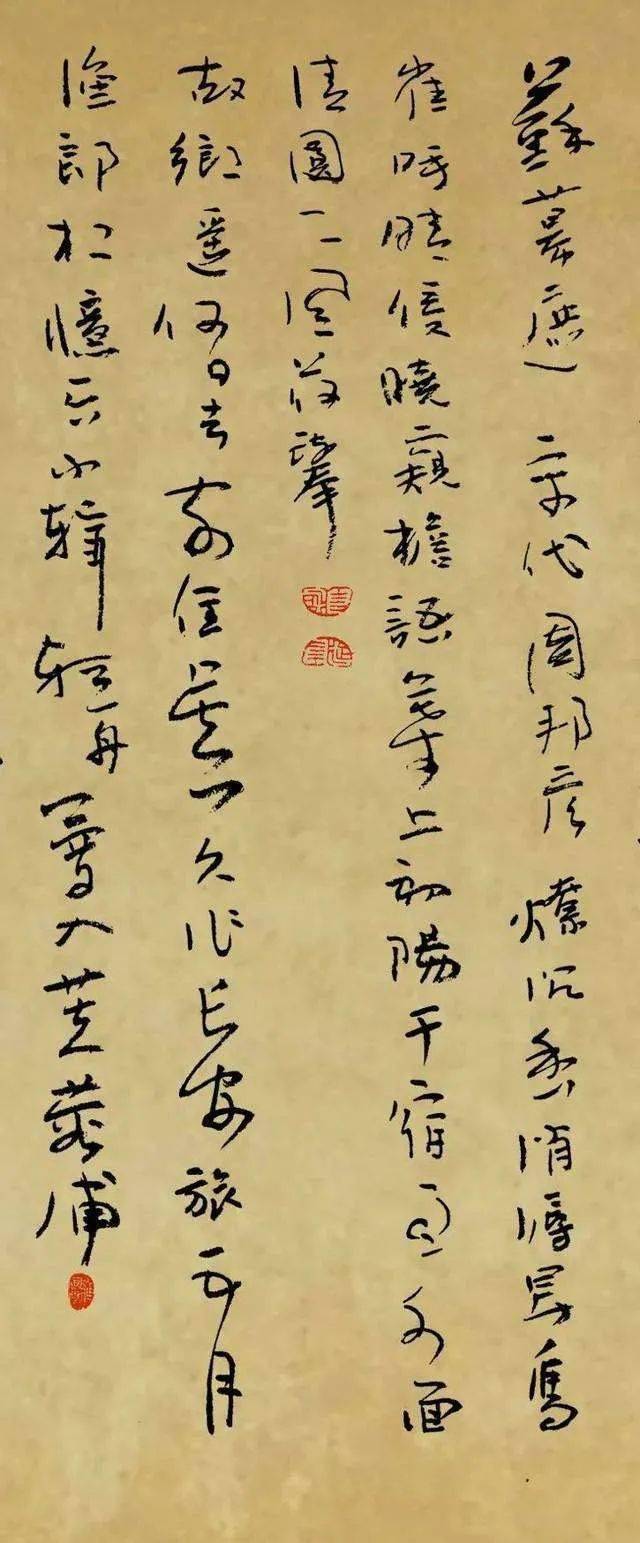 蘇幕遮 宋代 周邦彥 燎沉香消溽暑鳥
雀呼晴侵曉窺檐語葉上初陽干宿雨水面
清圓一一風荷舉
故鄉遙何日去家住吳門久作長安旅五月
漁郎相憶否小楫輕舟夢入芙蓉浦